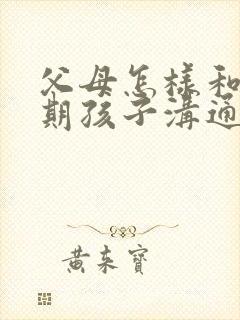 父母怎樣和
期孩子溝通
黃来寶